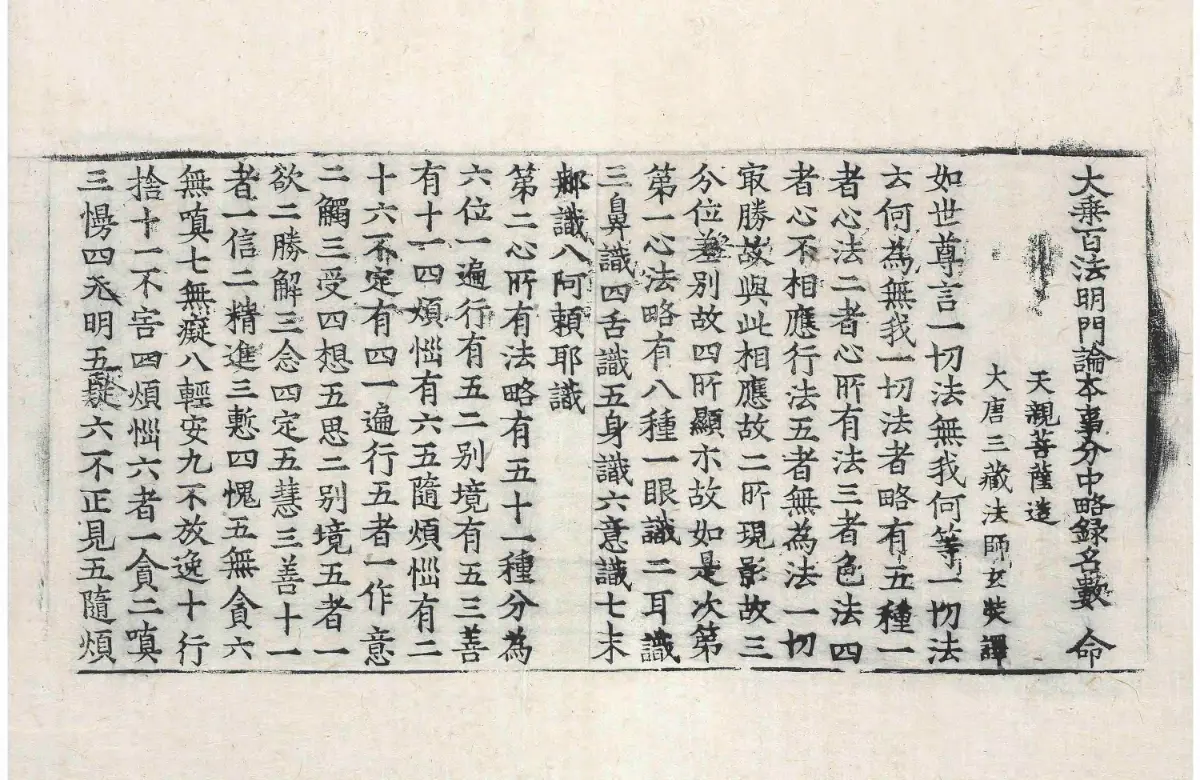 大乗百法明門論本事分中略録名數 命
天親菩薩造
大唐三藏法師玄奘譯
如世尊言一切法無我何等一切法
云何為無我一切法者略有五種一
者心法二者心所有法三者色法四
者心不相應行法五者無為法一切
冣勝故與此相應故二所現影故三
分位差別故四所顯示故如是次第
第一心法略有八種一眼識二耳識
三鼻識四舌識五身識六意識七末
䣯識八阿頼耶識
第二心所有法略有五十一種分為
六位一遍行有五二別境有五三善
有十一四煩惱有六五隨煩惱有二
十六不定有四一遍行五者一作意
二觸三受四想五思二別境五者一
欲二勝解三念四定五慧三善十一
者一信二精進三慙四愧五無貪六
無嗔七無癡八輕安九不放逸十行
捨十一不害四煩惱六者一貪二嗔
三慢四无明五疑六不正見五隨煩